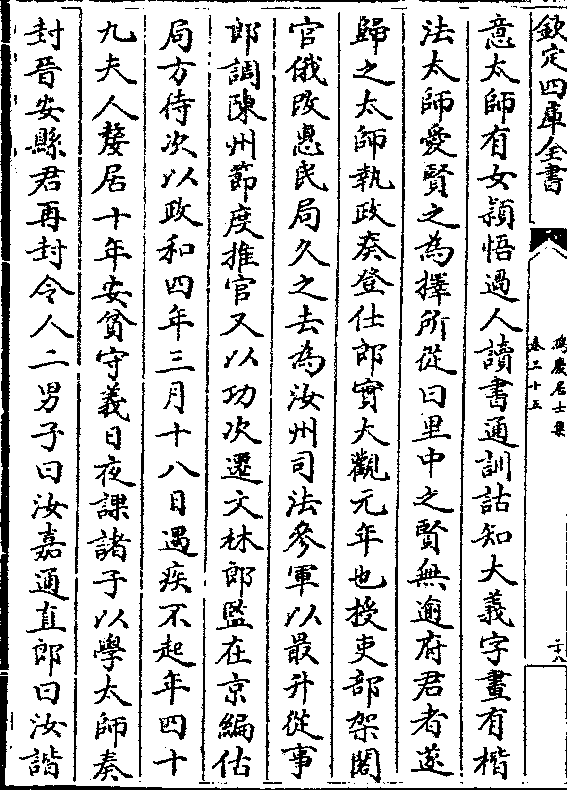 欽定四庫全書
鴻慶居士集
卷三十五
二十八
意太師有女潁悟過人讀書通訓詁知大義字畫有楷
法太師愛賢之為擇所從曰里中之賢無逾府君者遂
歸之太師執政奏登仕郎實大觀元年也授吏部架閣
官俄改惠民局久之去為汝州司法參軍以最升從事
郎調陳州節度推官又以功次遷文林郎監在京編估
局方待次以政和四年三月十八日遇疾不起年四十
九夫人嫠居十年安貧守義日夜課諸子以學太師奏
封晉安縣君再封令人二男子曰汝嘉通直郎曰汝諧